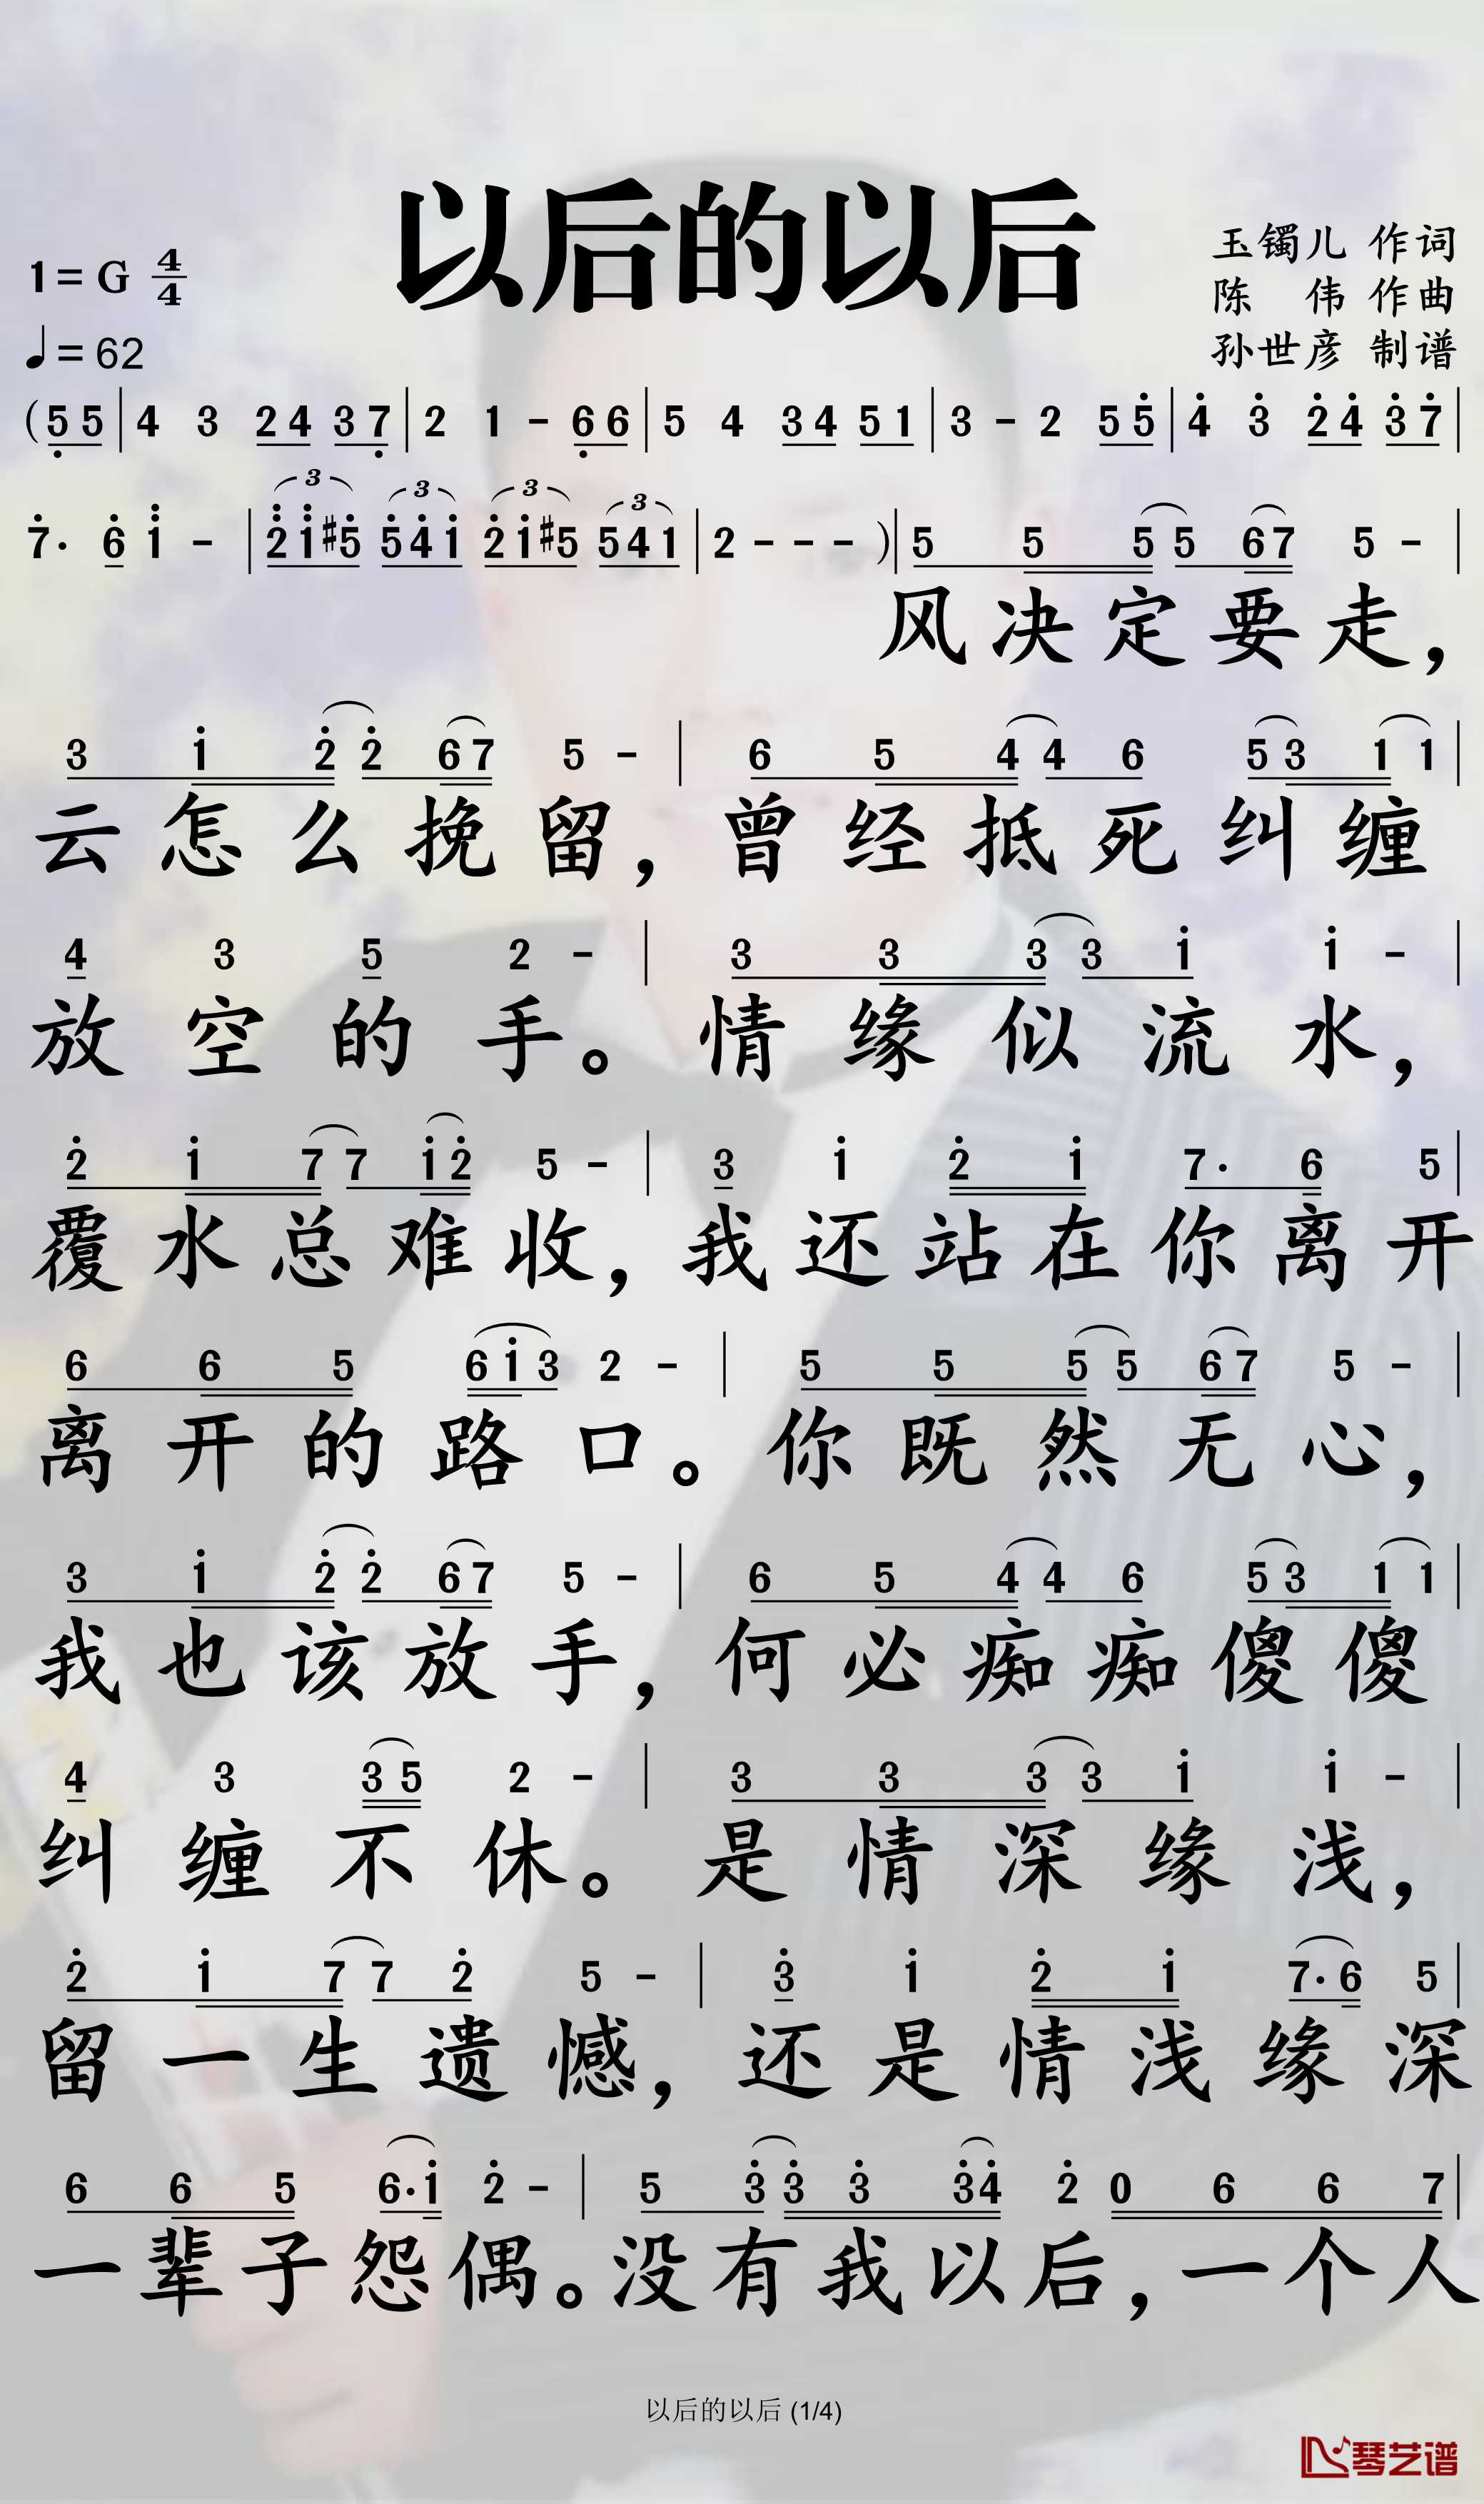 以后的以后
1=G 4/4
♩=62
玉镯儿 作词
陈 伟 作曲
孙世彦 制谱
(5̣ 5 | 4 3 2 4 3 7̣ | 2 1 - 6̣ 6 | 5 4 3 4 5 1 | 3 - 2 5 5̇ | 4̇ 3̇ 2̇ 4̇ 3̇ 7̇ |
7̇· 6̇ 1̈ - | 3 2̈ 1̈ #5̇ 3 5̇ 4̇ 1̇ 3 2̇ 1̇ #5 3 5 4 1 | 2 - - - ) | 5 5 5 5 6 7 5 - |
风决定要走，
3 1̇ 2̇ 2̇ 6 7 5 - | 6 5 4 4 6 5 3 1 1 |
云怎么挽留，曾经抵死纠缠
4 3 5 2 - | 3 3 3 3 1̇ 1̇ - |
放空的手。情缘似流水，
2̇ 1̇ 7 7 1̇ 2̇ 5 - | 3 1̇ 2̇ 1̇ 7· 6 5 |
覆水总难收，我还站在你离开
6 6 5 6 1̇ 3 2 - | 5 5 5 5 6 7 5 - |
离开的路口。你既然无心，
3 1̇ 2̇ 2̇ 6 7 5 - | 6 5 4 4 6 5 3 1 1 |
我也该放手，何必痴痴傻傻
4 3 3 5 2 - | 3 3 3 3 1̇ 1̇ - |
纠缠不休。是情深缘浅，
2̇ 1̇ 7 7 2̇ 5 - | 3̇ 1̇ 2̇ 1̇ 7· 6 5 |
留一生遗憾，还是情浅缘深
6 6 5 6· 1̇ 2̇ - | 5 3̇ 3̇ 3̇ 3̇ 4̇ 2̇ 0 6 6 7 |
一辈子怨偶。没有我以后，一个人
以后的以后 (1/4)
琴艺谱